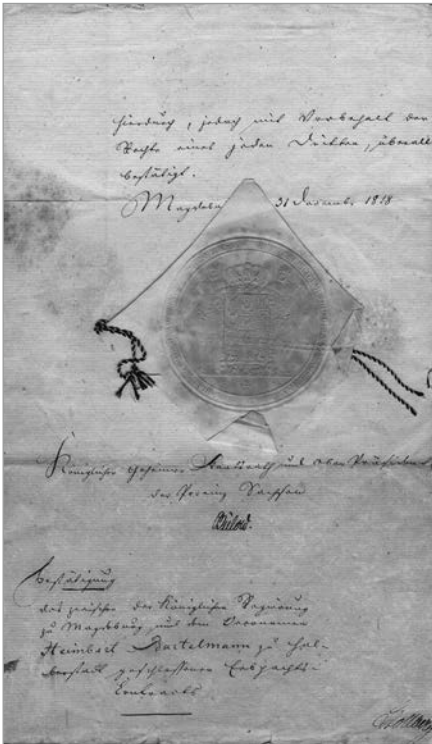 hierdurch, jedoch mit Vorbehalt der
Rechte eines jeden Dritten, überall
bestätigt.
Magdeburg 31 December 1818
Königlicher Geheimer Staatsrath und Ober Präsident
der Provinz Sachsen
Bülow.
Bestätigung
des zwischen der Königlichen Regierung
zu Magdeburg, und dem
Heimbert Bartelmann zu Hal-
berstadt geschlossenen Erbpachts-
Contracts